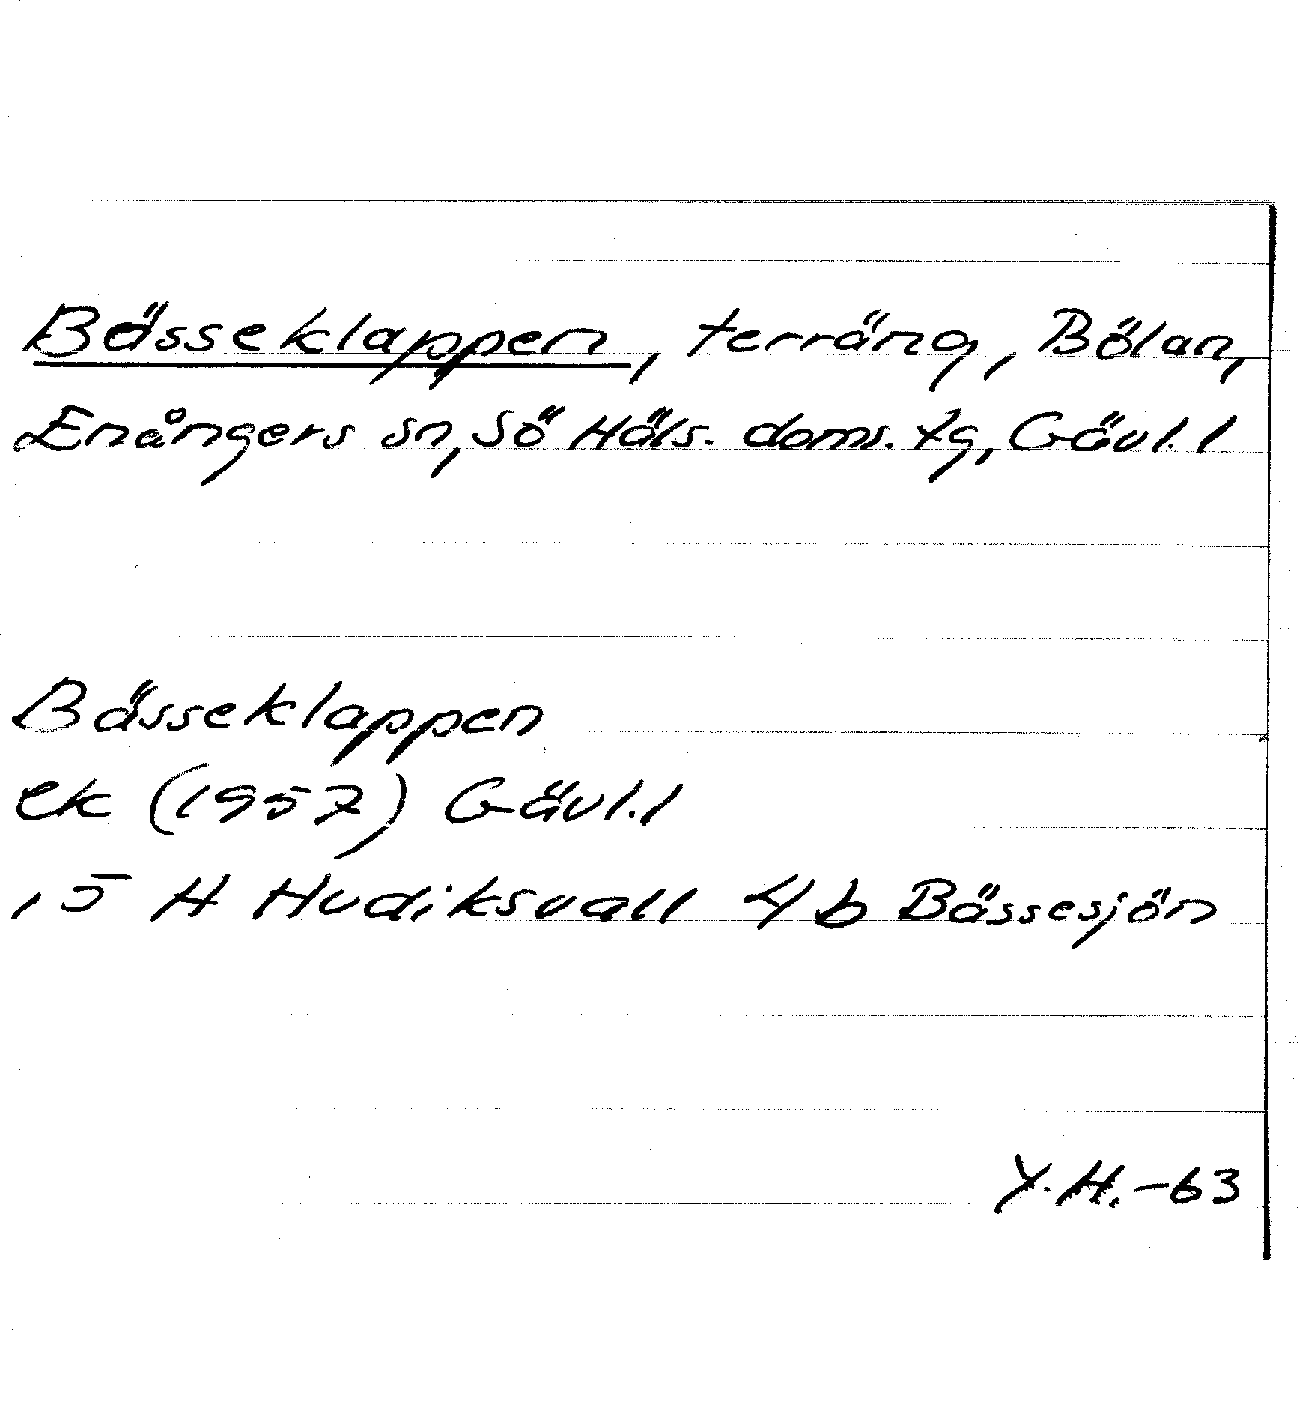 Bässeklappen, terräng, Bölan,
Enångers sn, Sö Häls. doms. tg, Gävl. l
Bässeklappen
ek (1957) Gävl. l
15 H Hudiksvall 4 b Bässesjön
Y.H. -63